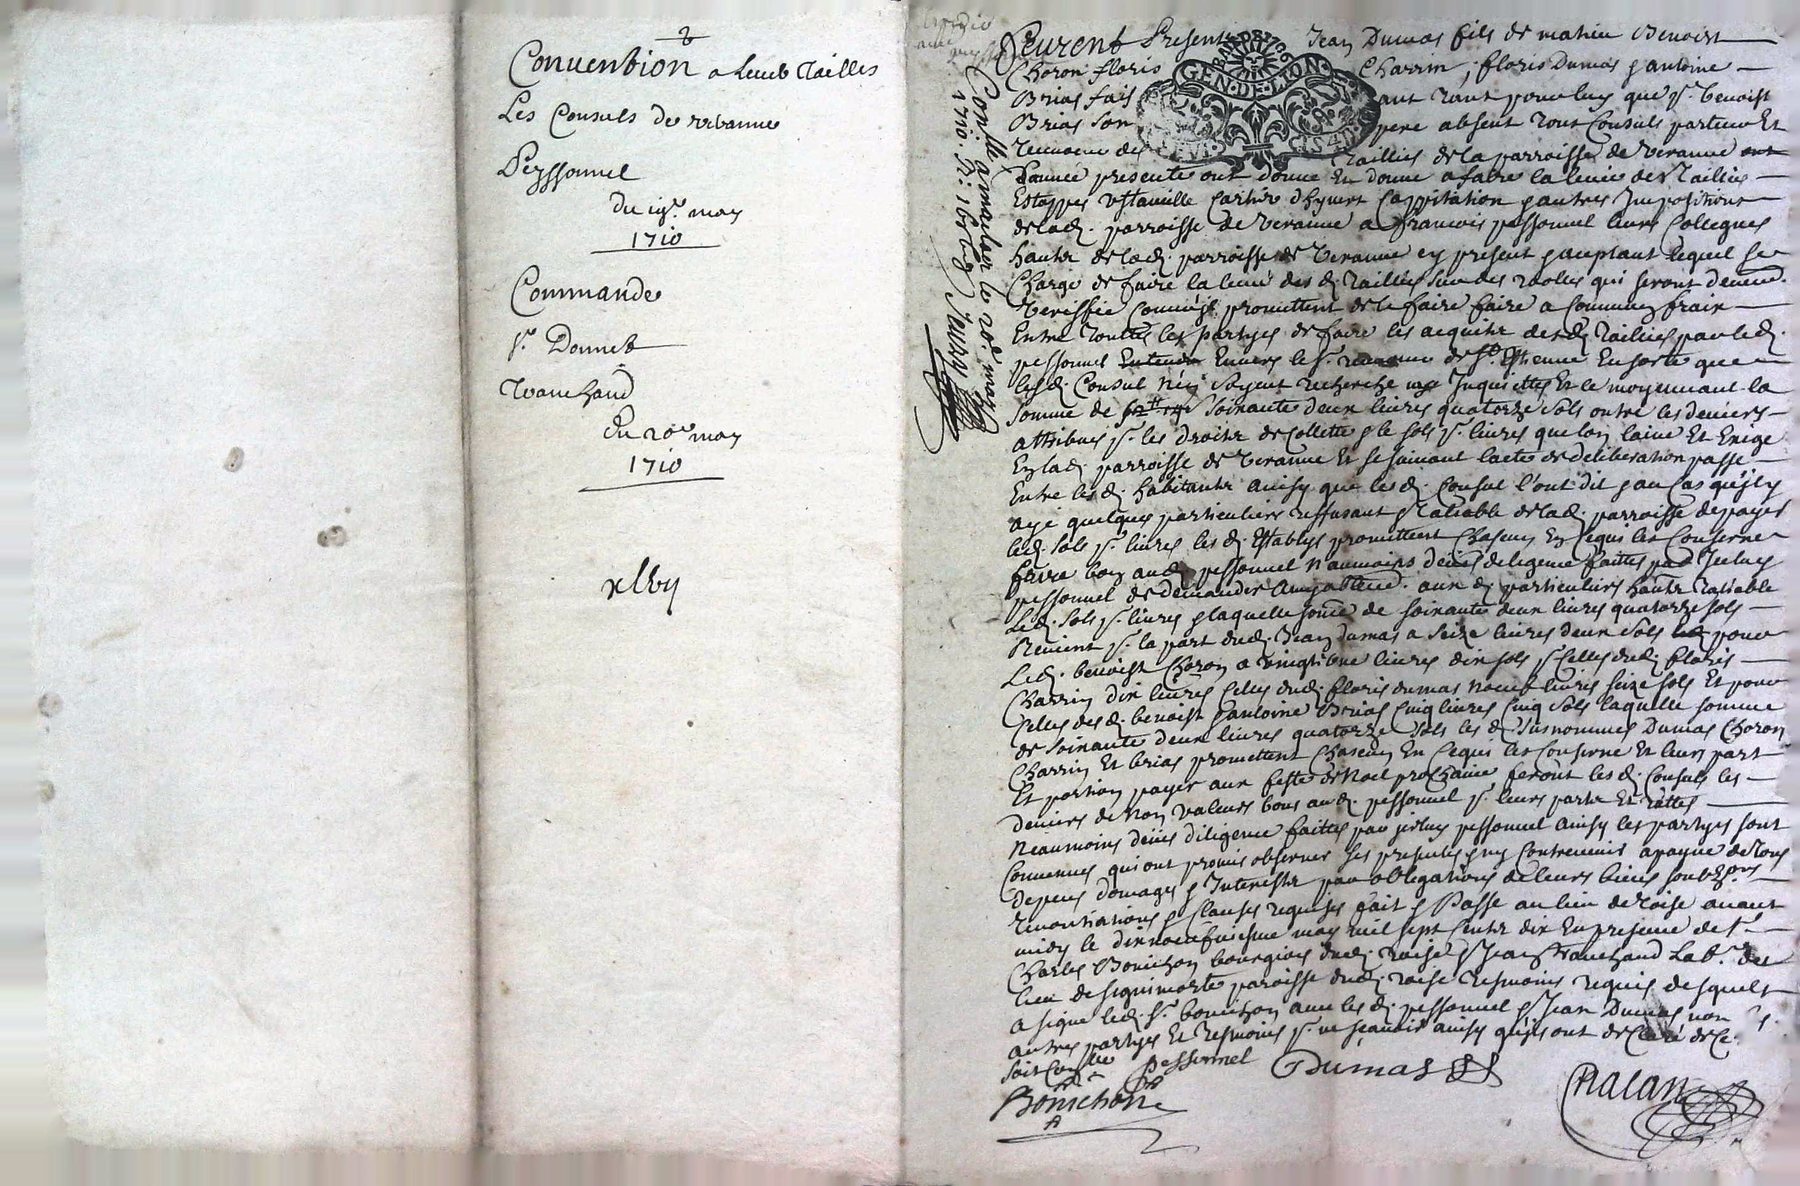 Convention a leueb Tailles
Les Consuls de veranne
Peyssonnel
du 19e. may
1710
Commande
Sr. Donneb
Tranchand
Du 20e may
1710
xlbij
Conllé a maclas le 20e may
1710. R: 16
Feurent Presens Jean Dumas fils de mathieu Benoist
Choron floris Charrin, floris Dumas & antoine
Brias fais ant tant pour luy que pr. benoist
Brias son pere absent tout Consuls
GEN·DE·LION
des Taillies de la parroisse de Veranne
Lannée presente ont donne En donne a faire la leuée des Taillies
Estappes Vstancille cartier dhyuert Cappitation & autres Impositions
de lad. parroisse de Veranne a francois pessonnel leurs Collegues
hantz de lad. parroisse de Veranne ey present & aceptant lequel se
Charge de faire la leué des d. Taillies suiuant les rooles qui seront
verissié promettent de le faire faire a Commungs fraix
Entre toutes les partyes de faire les acquitz desd. Taillies par led.
pessonnel Enuers le sr. de St. Estienne En sorte que
lesd. Consul n'en soyent recherche ny Inquiettes Et ce moyennant la
somme de soixante deux liures quatorze sols outre les deniers
attribues pr. les droitz de Collette & le sols pr. liures que lon laiue Et Exige
En lad. parroisse de Veranne Et se suiuant lacte de deliberation passé
Entre lesd. habitantz ainsy que lesd. Consul l'ont dit & au Cas quil y
aye quelques particuliers reffusant & de lad. parroisse de payer
led. sols pr. liures les d. Establys promettent Chascun En Ce qui les Conserne
faire bon aud. pessonnel neaumoins deües deligence faittes par Iceluy
pessonnel de demander Amyablement aux d. particuliers hantz
Led. sols pr. liures & laquelle some de soixante deux liures quatorze sols
Revient pr. la part dud. Jean dumas a seize liures deux sols pour
Led. benoist Choron a vingt une liures dix sols pr. Celles dud. floris
Charrin dix liures Celles dud. floris dumas noeuf liures seize sols Et pour
Celles desd. benoist & antoine Brias Cinq liures Cinq sols laquelle somme
de soixante deux liures quatorze sols les d. susnommes Dumas Choron
Charrin Et brias promettent Chascun En Ce qui les Conserne Et leurs part
Et portion payer aux feste de Noel prochaine feront lesd. Consuls les
deniers de Non Valeurs bons aud. pessonnel pr. leurs partz Et rattes
Neaumoins deües diligence faittes par iceluy pessonnel ainsy les partyes sont
Conuenues qui ont promis obseruer les presentes & ny Contreuenir a payne de tous
depens domages & Interestz par obligations de leurs biens
renontiations & Clauses requises fait & Passé au lieu de roise auant
midy le dixnoeufuiesme may mil sept Centz dix En presence de sr.
Charles Bonichon bourgiois dud. roise & Jean Tranchand Lab. du
lieu de siquimorte paroisse dud. roise tesmoins requis desquels
a signe led. sr. bonichon auec les d. pessonnel & Jean Dumas non
autres partyes Et tesmoins pr. ne sçauoir ainsy qu'ils ont declaré de Ce
pessonnel
Dumas
Bonichon
Chalan